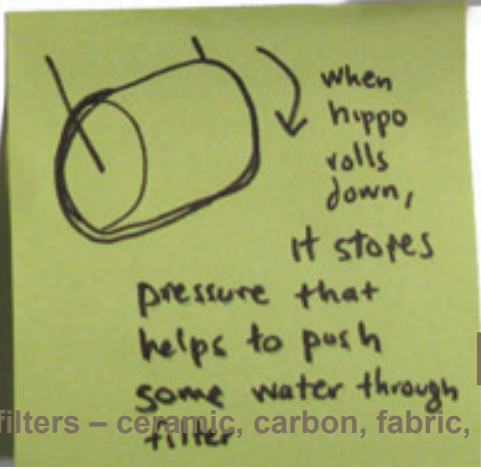 when
hippo
rolls
down,
it stores
pressure that
helps to push
some water through
filters – ceramic, carbon, fabric,
filter